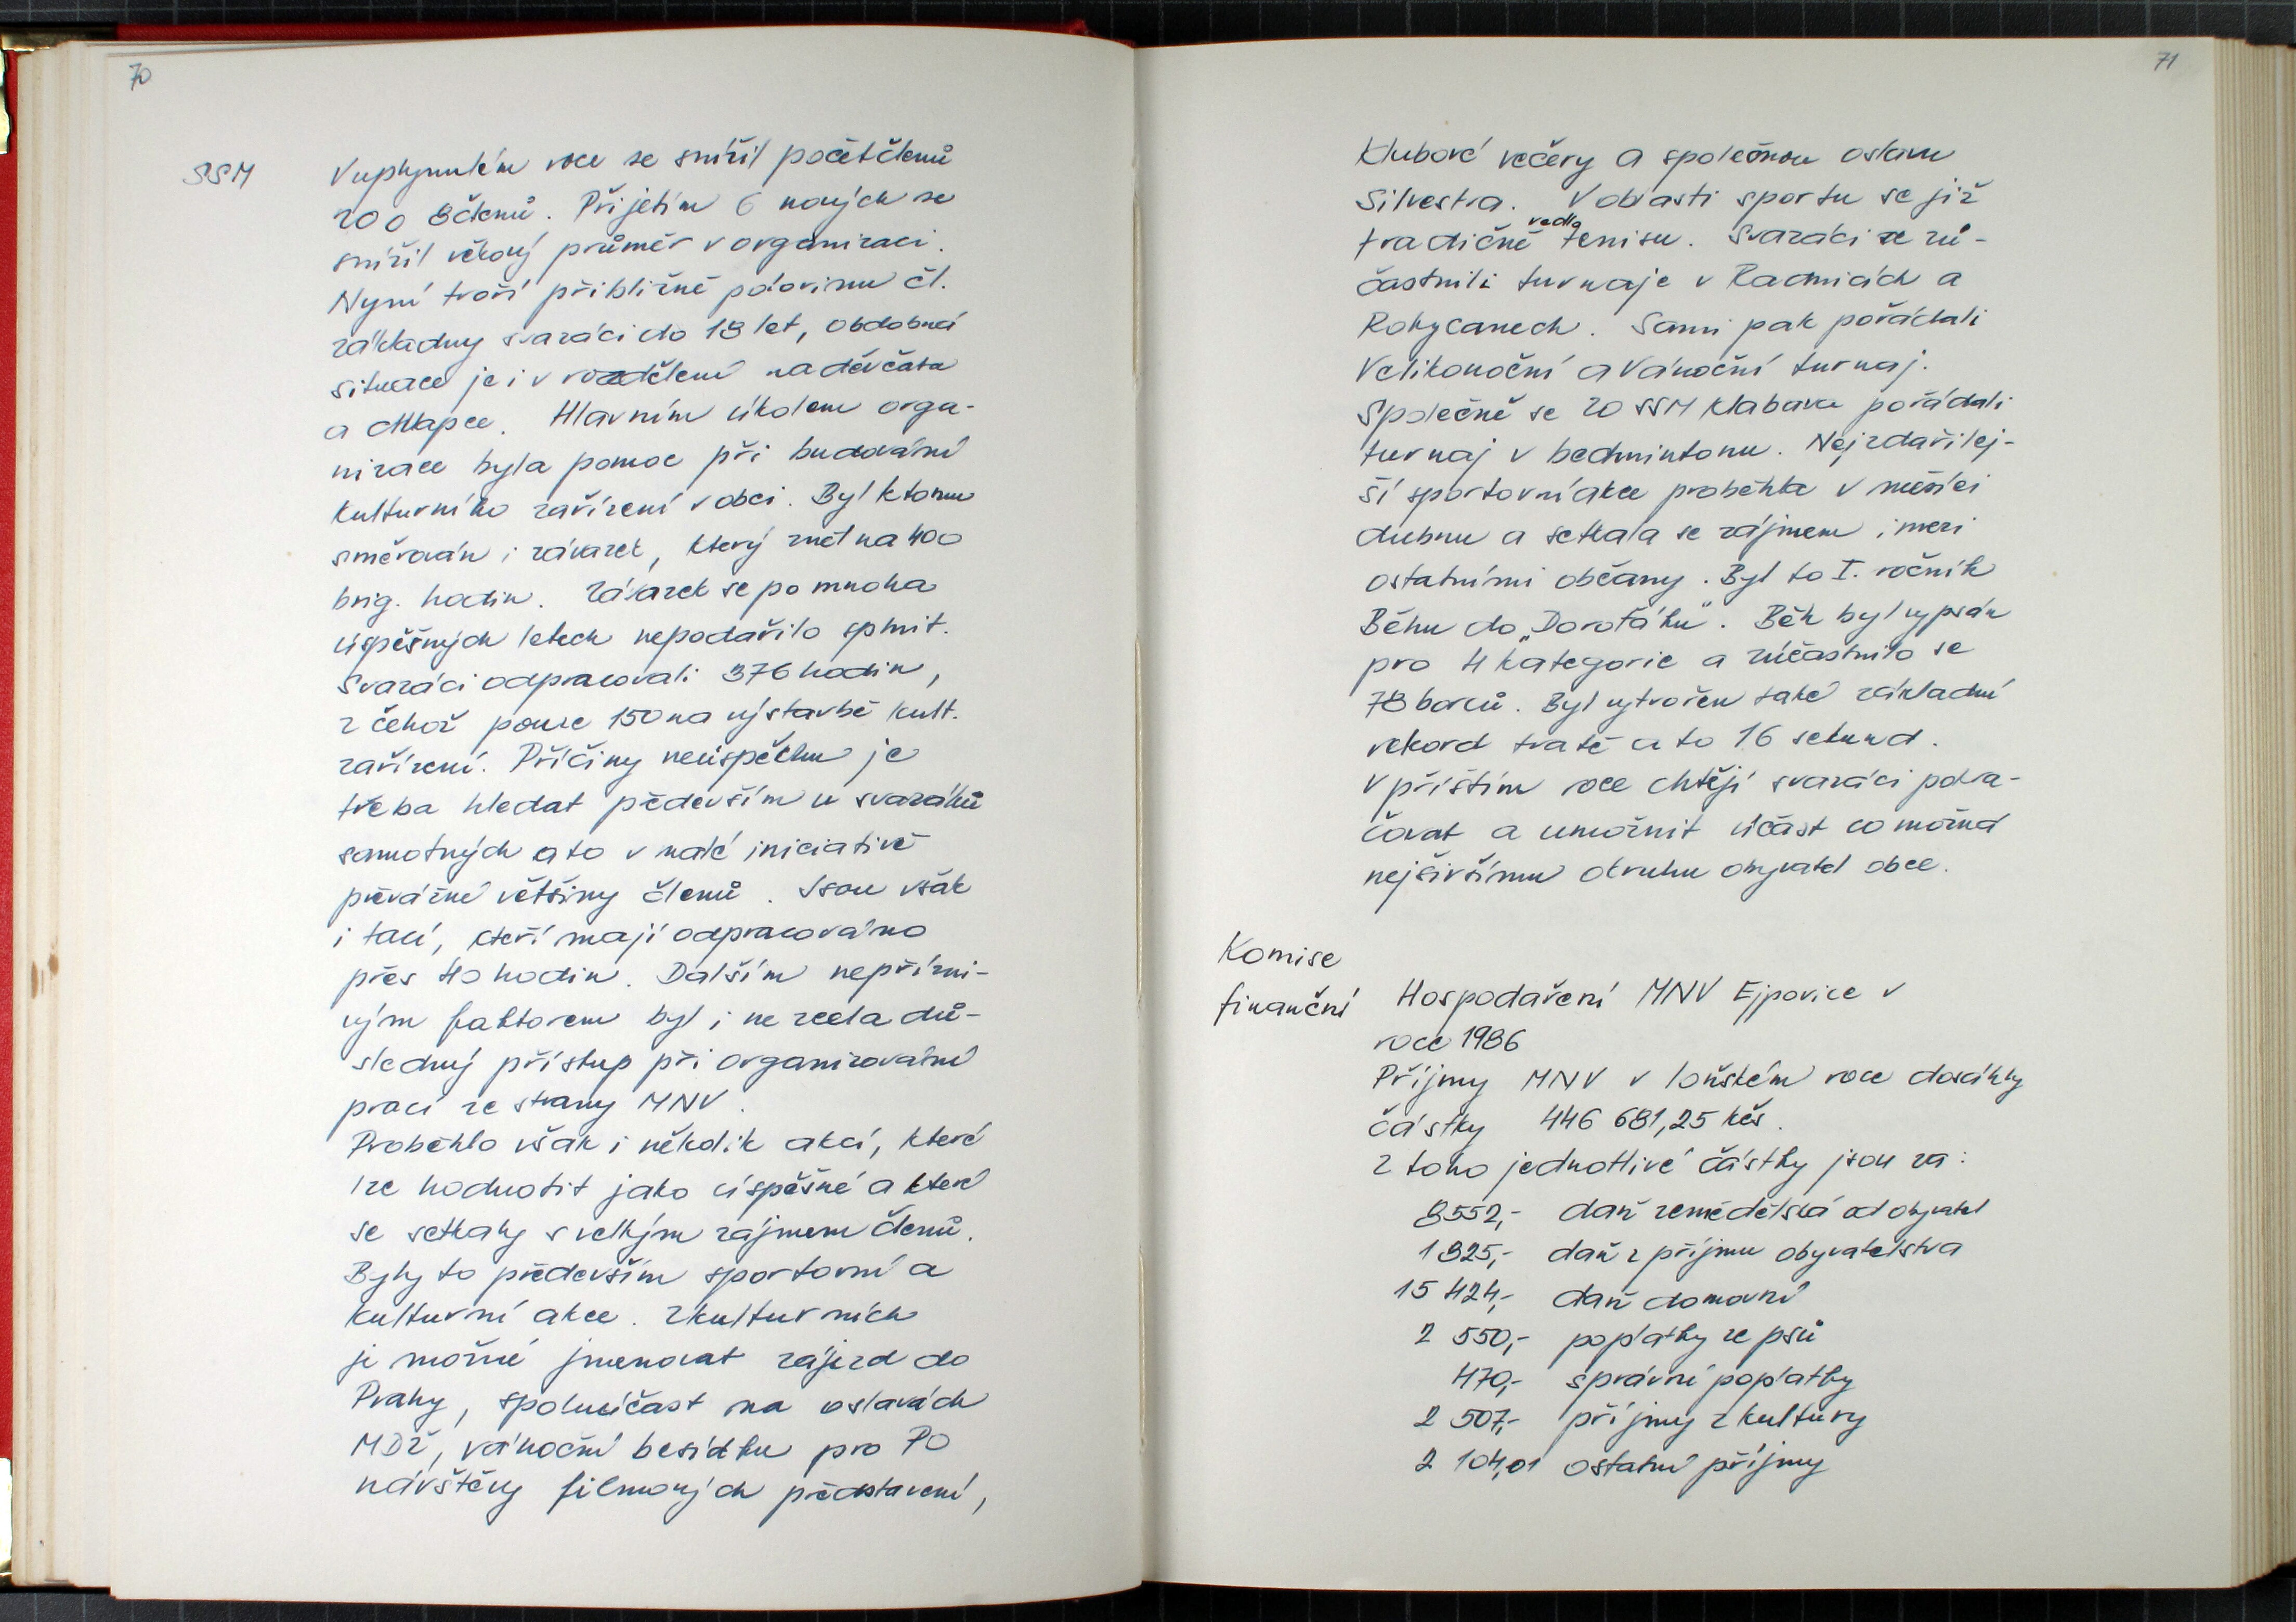 70
SSM
V uplynulém roce se snížil počet členů
ZO o 8 členů. Přijetím 6 nových se
snížil věkový průměr v organizaci.
Nyní tvoří přibližně polovinu čl.
základny svazáci do 18 let, obdobná
situace je i v rozdělení na děvčata
a chlapce. Hlavním úkolem orga-
nizace byla pomoc při budování
kulturního zařízení v obci. Byl k tomu
směrován i závazek, který zněl na 400
brig. hodin. Závazek se po mnoha
úspěšných letech nepodařilo splnit.
Svazáci odpracovali 376 hodin,
z čehož pouze 150 na výstavbě kult.
zařízení. Příčiny neúspěchu je
třeba hledat především u svazáků
samotných a to v malé iniciativě
převážné většiny členů. Jsou však
i tací, kteří mají odpracováno
přes 40 hodin. Dalším nepřízni-
vým faktorem byl i ne zcela dů-
sledný přístup při organizování
prací ze strany MNV.
Proběhlo však i několik akcí, které
lze hodnotit jako úspěšné a které
se setkaly s velkým zájmem členů.
Byly to především sportovní a
kulturní akce. Z kulturních
je možné jmenovat zájezd do
Prahy, spoluúčast na oslavách
MDŽ, vánoční besídku pro PO
návštěvy filmových představení,
71
Klubové večery a společnou oslavu
Silvestra. V oblasti sportu se již
tradičně vedla tenisu. Svazáci se zú-
častnili turnaje v Radnicích a
Rokycanech. Sami pak pořádali
Velikonoční a Vánoční turnaj.
Společně se ZO SSM Klabava pořádali
turnaj v badmintonu. Nejzdařilej-
ší sportovní akce proběhla v měsíci
dubnu a setkala se zájmem i mezi
ostatními občany. Byl to I. ročník
Běhu do „Dorotáku". Běh byl vypsán
pro 4 kategorie a zúčastnilo se
78 borců. Byl vytvořen také základní
rekord tratě a to 16 sekund.
V příštím roce chtějí svazáci pokra-
čovat a umožnit účast co možná
nejširšímu okruhu obyvatel obce.
Komise
finanční
Hospodaření MNV Ejpovice v
roce 1986
Příjmy MNV v loňském roce dosáhly
částky 446 681,25 kčs.
Z toho jednotlivé částky jsou za:
8552,- daň zemědělská od obyvatel
1 825,- daň z příjmu obyvatelstva
15 424,- daň domovní
2 550,- poplatky ze psů
470,- správní poplatky
2 507,- příjmy z kultury
2 104,01 ostatní příjmy